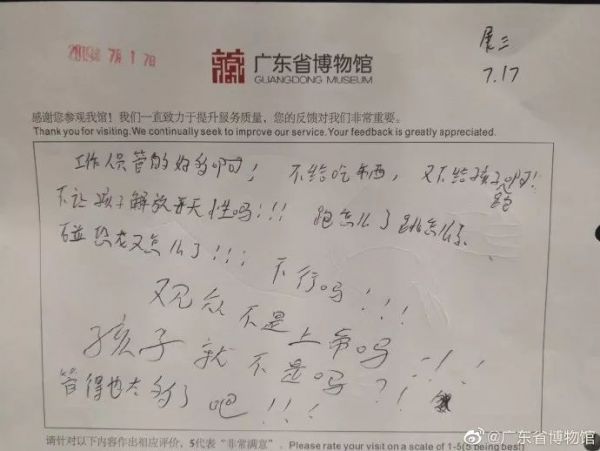 2019年 7月 17日
广东省博物馆
GUANGDONG MUSEUM
展三
7.17
感谢您参观我馆！我们一直致力于提升服务质量，您的反馈对我们非常重要。
Thank you for visiting. We continually seek to improve our service. Your feedback is greatly appreciated.
工作人员管的好多啊！ 不给吃东西， 又不给孩子跑啊！
不让孩子解放天性吗！！！ 跑怎么了 跳怎么了
碰恐龙又怎么了！！！
不行吗！！！
观众不是上帝吗！！！
孩子就不是吗？！！
管得也太多了吧！！！
请针对以下内容作出相应评价，5代表“非常满意”。 Please rate your visit on a scale of 1-5(5 being best)
@广东省博物馆